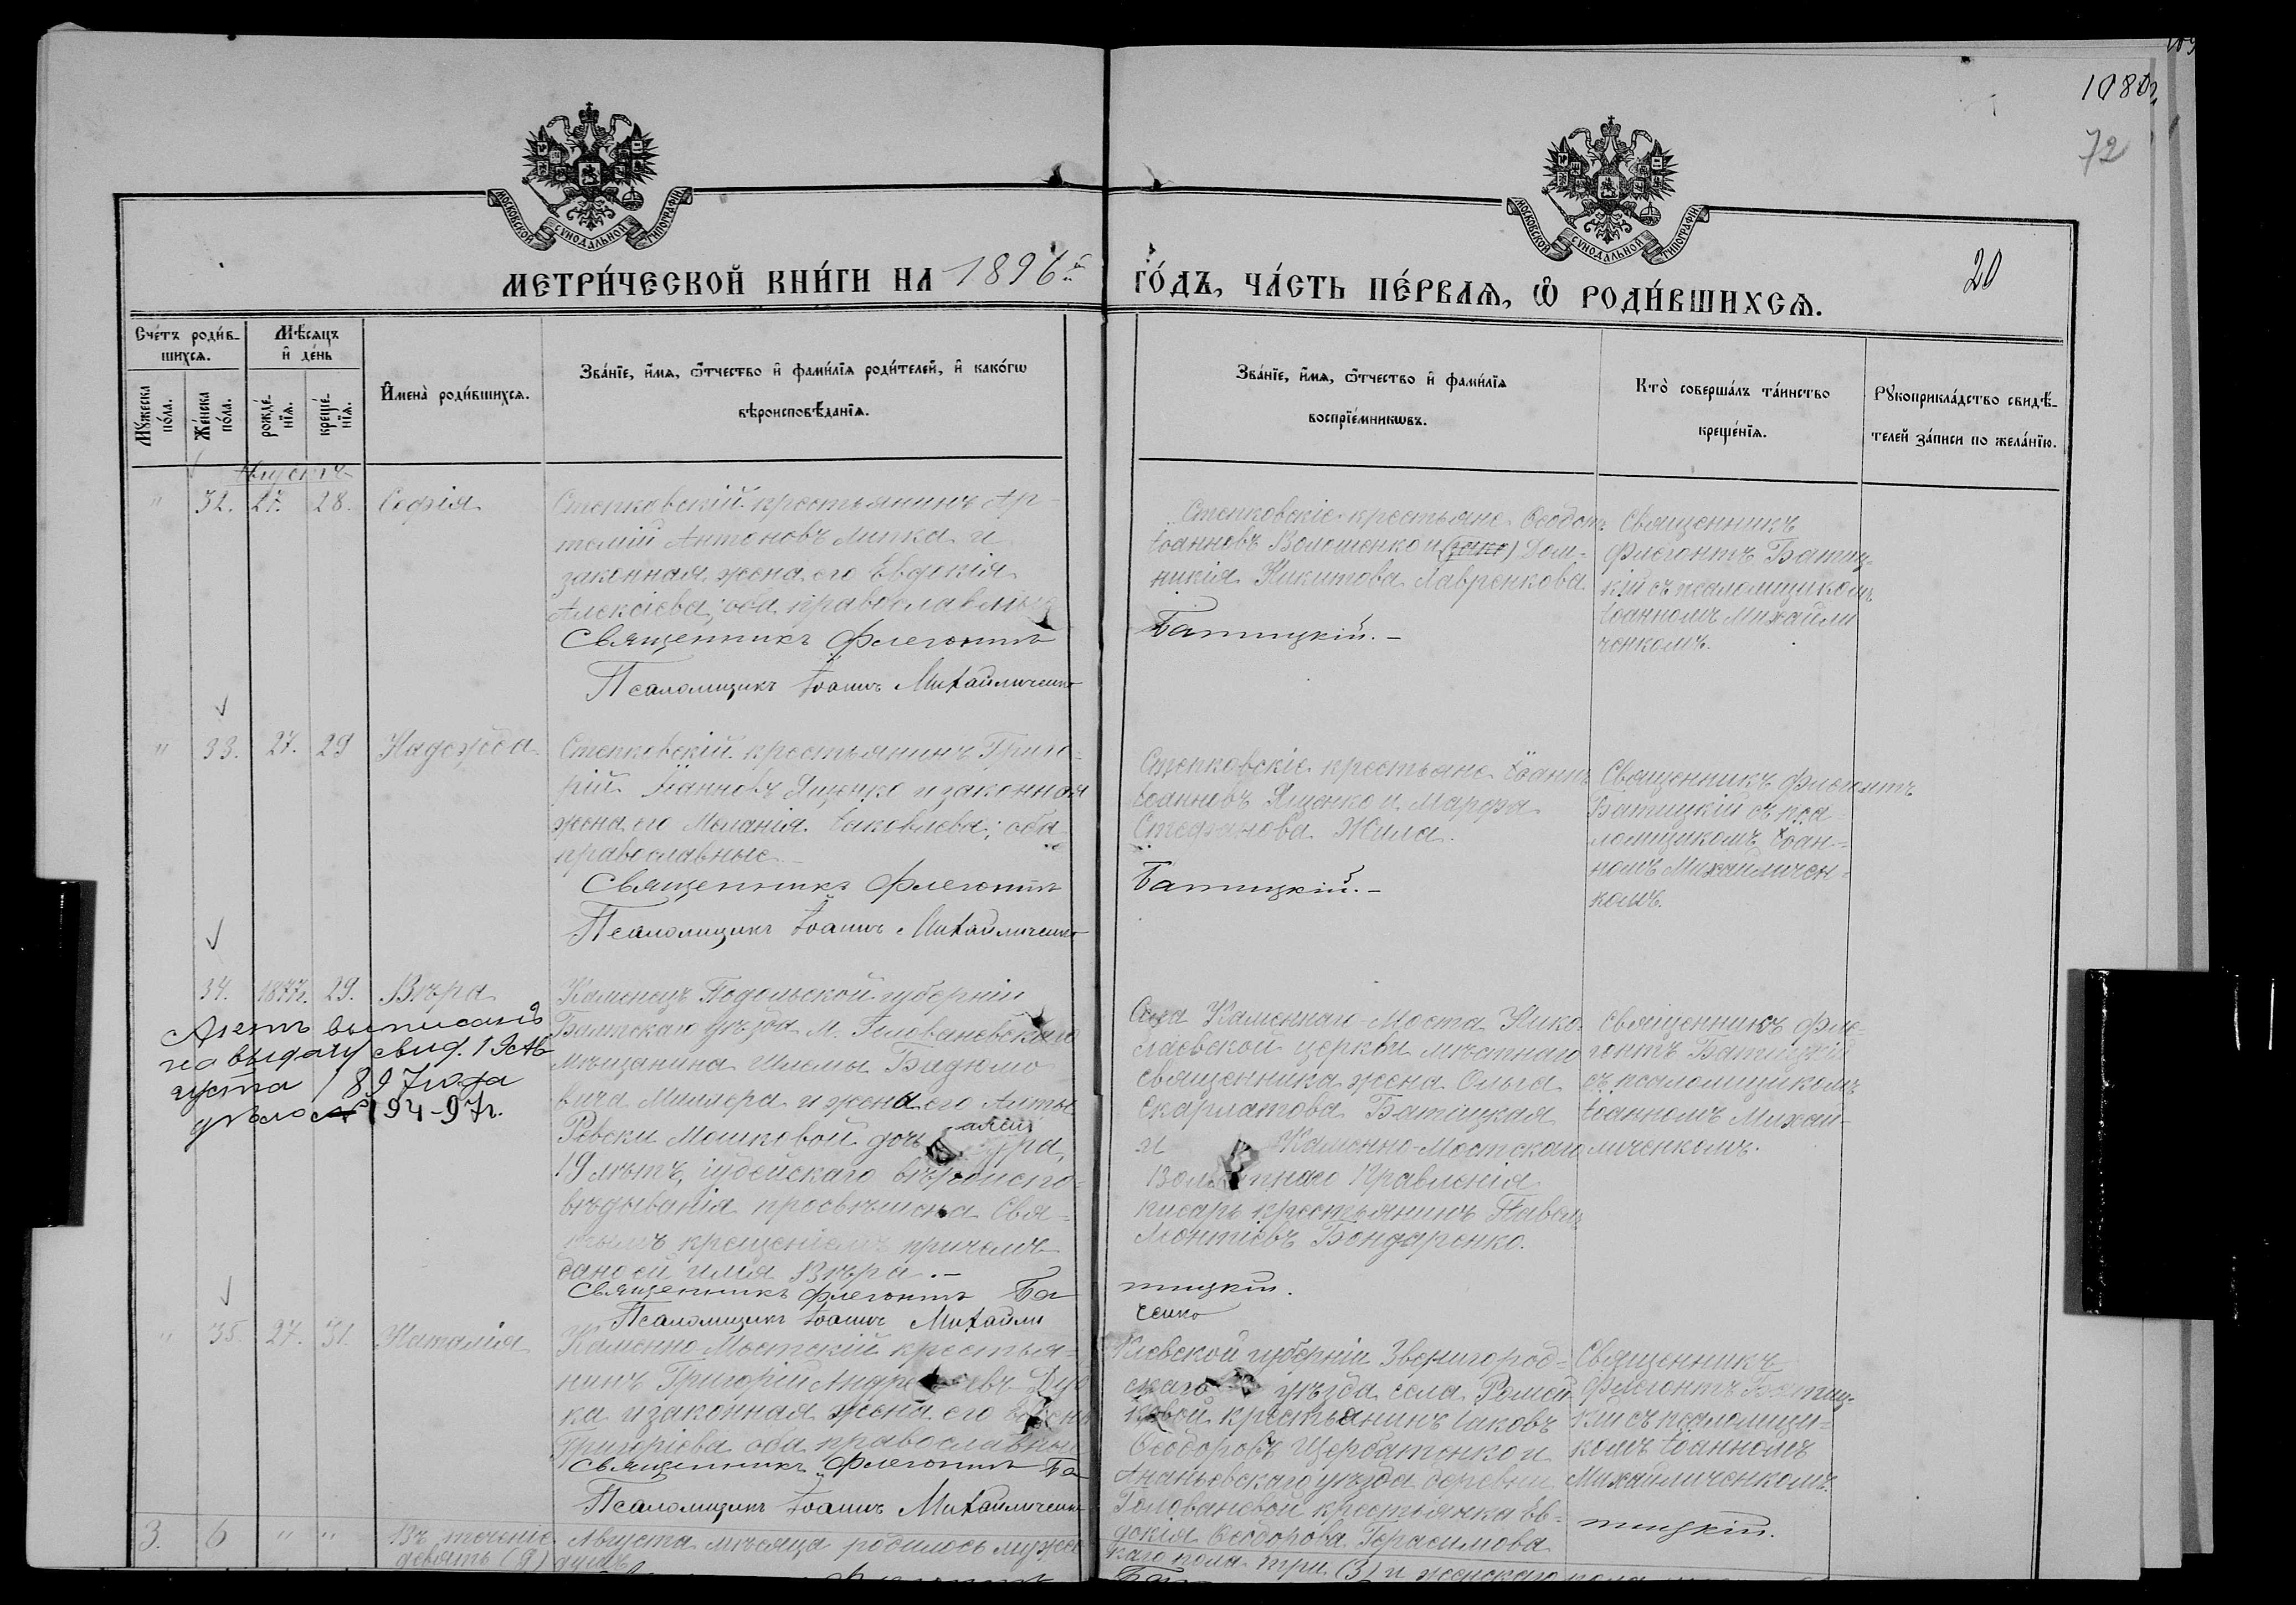 1080
72
20
МОСКОВСКОЙ СУНОДАЛЬНОЙ ТИПОГРАФІИ
МОСКОВСКОЙ СУНОДАЛЬНОЙ ТИПОГРАФІИ
МЕТРИ́ЧЕСКОЙ КНИ́ГИ НА 1896й ГО́ДЪ, ЧА́СТЬ ПЕ́РВАѦ, Ѽ РОДИ́ВШИХСѦ.
Сче́тъ роди́в-
шихсѧ.
Мꙋжеска по́ла.
Же́нска по́ла.
Мѣ́сѧцъ
и҆ де́нь
рожде́-
нїѧ.
креще́-
нїѧ.
И҆мена̀ роди́вшихсѧ.
Зва́нїе, и҆́мѧ, ѿтчество и҆ фами́лїѧ роди́телей, и҆ како́гѡ
вѣроисповѣ́данїѧ.
Зва́нїе, и҆́мѧ, ѿтчество и҆ фами́лїѧ
воспрїе́мникѡвъ.
Кто̀ соверша́лъ та́инство
креще́нїѧ.
Рꙋкоприкла́дство свидѣ́-
телей за́писи по жела́нїю.
Августъ
" 32. 27. 28. Софія
Степковскій крестьянинъ Ар-
темій Антоновъ Липка и
законная жена его Евдокія
Алексіева; оба православные
Священникъ Флегонтъ
Псаломщикъ Іоаннъ Михайличенко
Степковскіе крестьяне Ѳеодотъ
Іоанновъ Волошенко и Дом-
никія Никитова Лавренкова
Батицкій.-
Священникъ
Флегонтъ Батиц-
кій съ псаломщикомъ
Іоанномъ Михайли
ченкомъ.
" 33. 27. 29 Надежда
Степковскій крестьянинъ Григо-
рій Іоанновъ Яценко и законная
жена его Меланія Іаковлева; оба
православные.
Священникъ Флегонтъ
Псаломщикъ Іоаннъ Михайличенко
Степковскіе крестьяне Іоаннъ
Іоанновъ Яценко и Марфа
Стефанова Жила.
Батицкій.-
Священникъ Флегонтъ
Батицкій съ пса
ломщикомъ Іоан-
номъ Михайличен-
комъ.
34. 1877г. 29. Вѣра
Актъ выписанъ
на выдачу свид. 19 Ав
густа 1897 года
дѣло № 194-97г.
Каменецъ Подольской губерніи
Балтскаго уѣзда М. Голованевскаго
мѣщанина Шлемы Бадюмо
вича Миллера и жена его Анты
Ревеки Мошковой дочь
19 лѣтъ, іудейскаго вѣроиспо-
вѣдыванія просвѣщена Свя-
тымъ крещеніемъ причемъ
дано ей имя Вѣра.-
Священникъ Флегонтъ Ба
Псаломщикъ Іоаннъ Михайли
Села Каменнаго Моста Нико
лаевской церкви мѣстнаго
священника жена Ольга
Скарлатова Батицкая
и Каменно-Мостскаго
Волостнаго Правленія
писарь крестьянинъ Павелъ
Леонтіевъ Бондаренко.
тицкій.
ченко
Священникъ Фле-
гонтъ Батицкій
съ псаломщикомъ
Іоанномъ Михай-
личенкомъ.
" 35. 27. 31. Наталія
Каменно Мостскій крестья-
нинъ Григорій
ка и законная жена его
Григоріева оба православные
Священникъ Флегонтъ Ба
Псаломщикъ Іоаннъ Михайличенко
Кіевской губерніи Звенигород-
скаго уѣзда села
крестьянинъ Іаковъ
Ѳеодоровъ Щербатенко и
Ананьевскаго уѣзда деревни
Голованевой крестьянка Ев-
докія Ѳеодорова Герасимова
Священникъ
Флегонтъ Батиц-
кій съ псаломщи-
комъ Іоанномъ
Михайличенкомъ.
тицкій.
3. 6 " " Въ теченіе Августа мѣсяца родилось мужес
каго пола три (3) и женскаго пола
девять (9) душъ